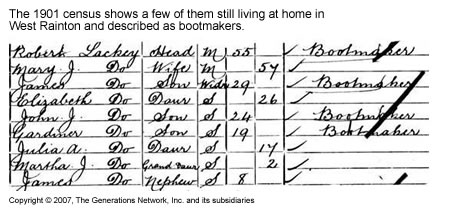 The 1901 census shows a few of them still living at home in
West Rainton and described as bootmakers.
Robert Lackey Head M 55 ✓ Bootmaker
Mary J. Do Wife M 54 ✓
James Do Son Widr 29 ✓ Bootmaker
Elizabeth Do Daur S 26 ✓
John J. Do Son S 24 ✓ Bootmaker
Gardiner Do Son S 19 ✓ Bootmaker
Julia A. Do Daur S 14 ✓
Martha J. Do Grand Daur S 2 ✓
James Do Nephew S 8 ✓
Copyright © 2007, The Generations Network, Inc. and its subsidiaries